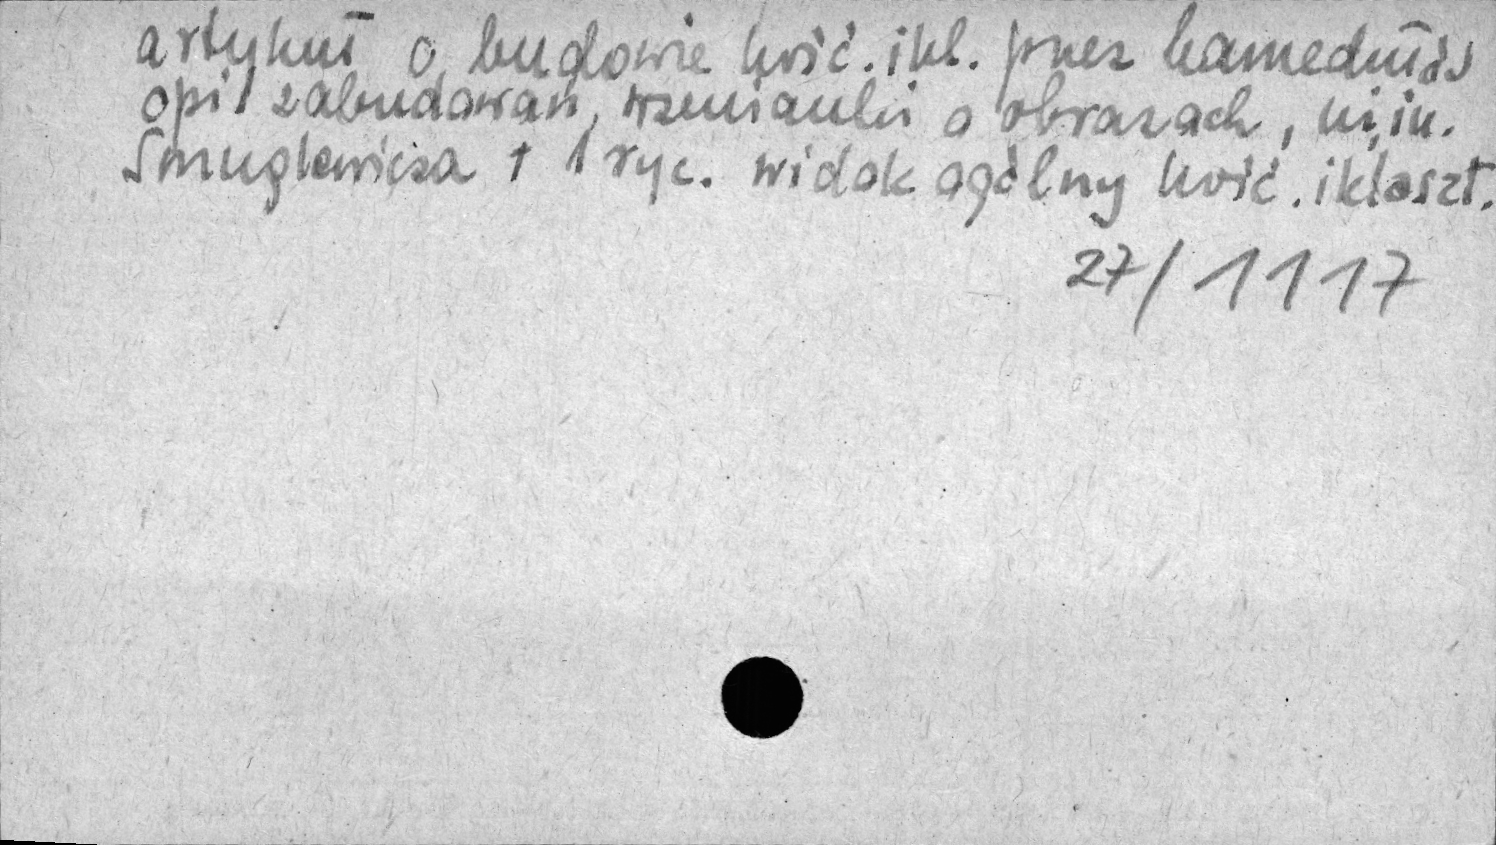 artykuł o budowie kość. i kl. przez kamedułów
opis zabudowań, wzmianki o obrazach, m.in.
Smuglewicza + 1 ryc. widok ogólny kość. i klaszt.
27/1117